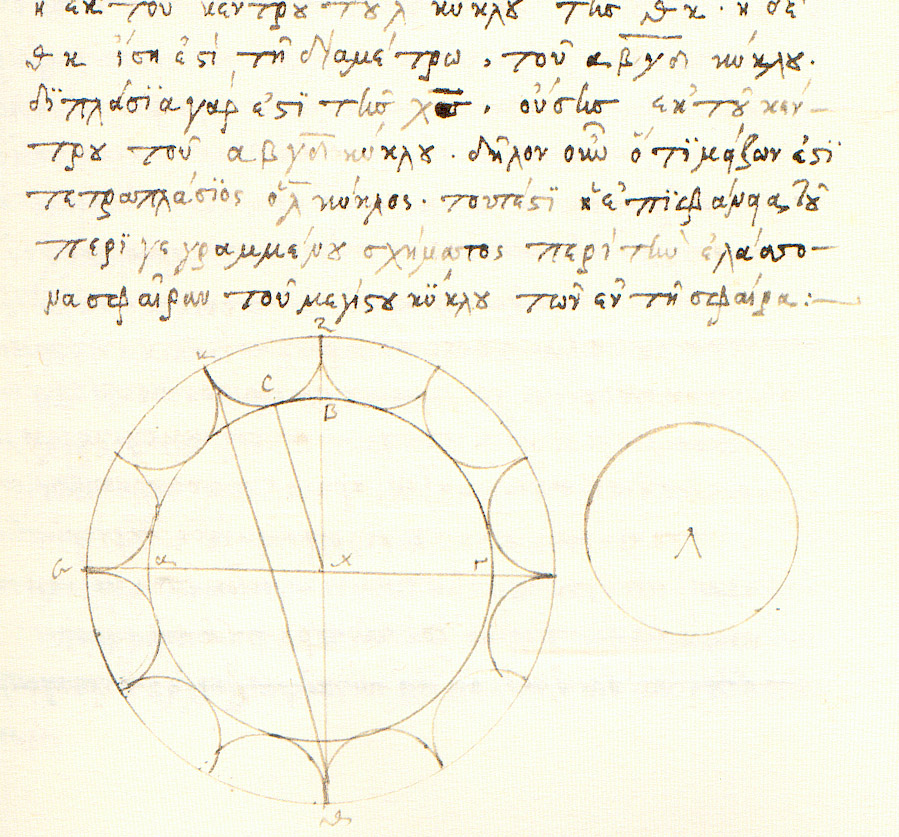 ἡ ἐκ τοῦ κέντρου τοῦ λ κύκλου τῆς θκ · ἡ δὲ
θκ ἴση ἐστὶ τῆ διαμέτρω , τοῦ αβγδ κύκλου ·
διπλασία γάρ ἐστι τῆς χσ , οὔσης ἐκ τοῦ κέν-
τρου τοῦ αβγδ κύκλου · δῆλον οὖν ὅτι μείζων ἐστὶ
τετραπλάσιος ὁ λ κύκλος · τουτέστι ἡ ἐπιφάνεια τοῦ
περιγεγραμμένου σχήματος περὶ τὴν ἐλάσσο-
να σφαῖραν τοῦ μεγίστου κύκλου τῶν ἐν τῆ σφαίρα :-
Ζ
κ
C
Β
α
Χ
Γ
Λ
θ